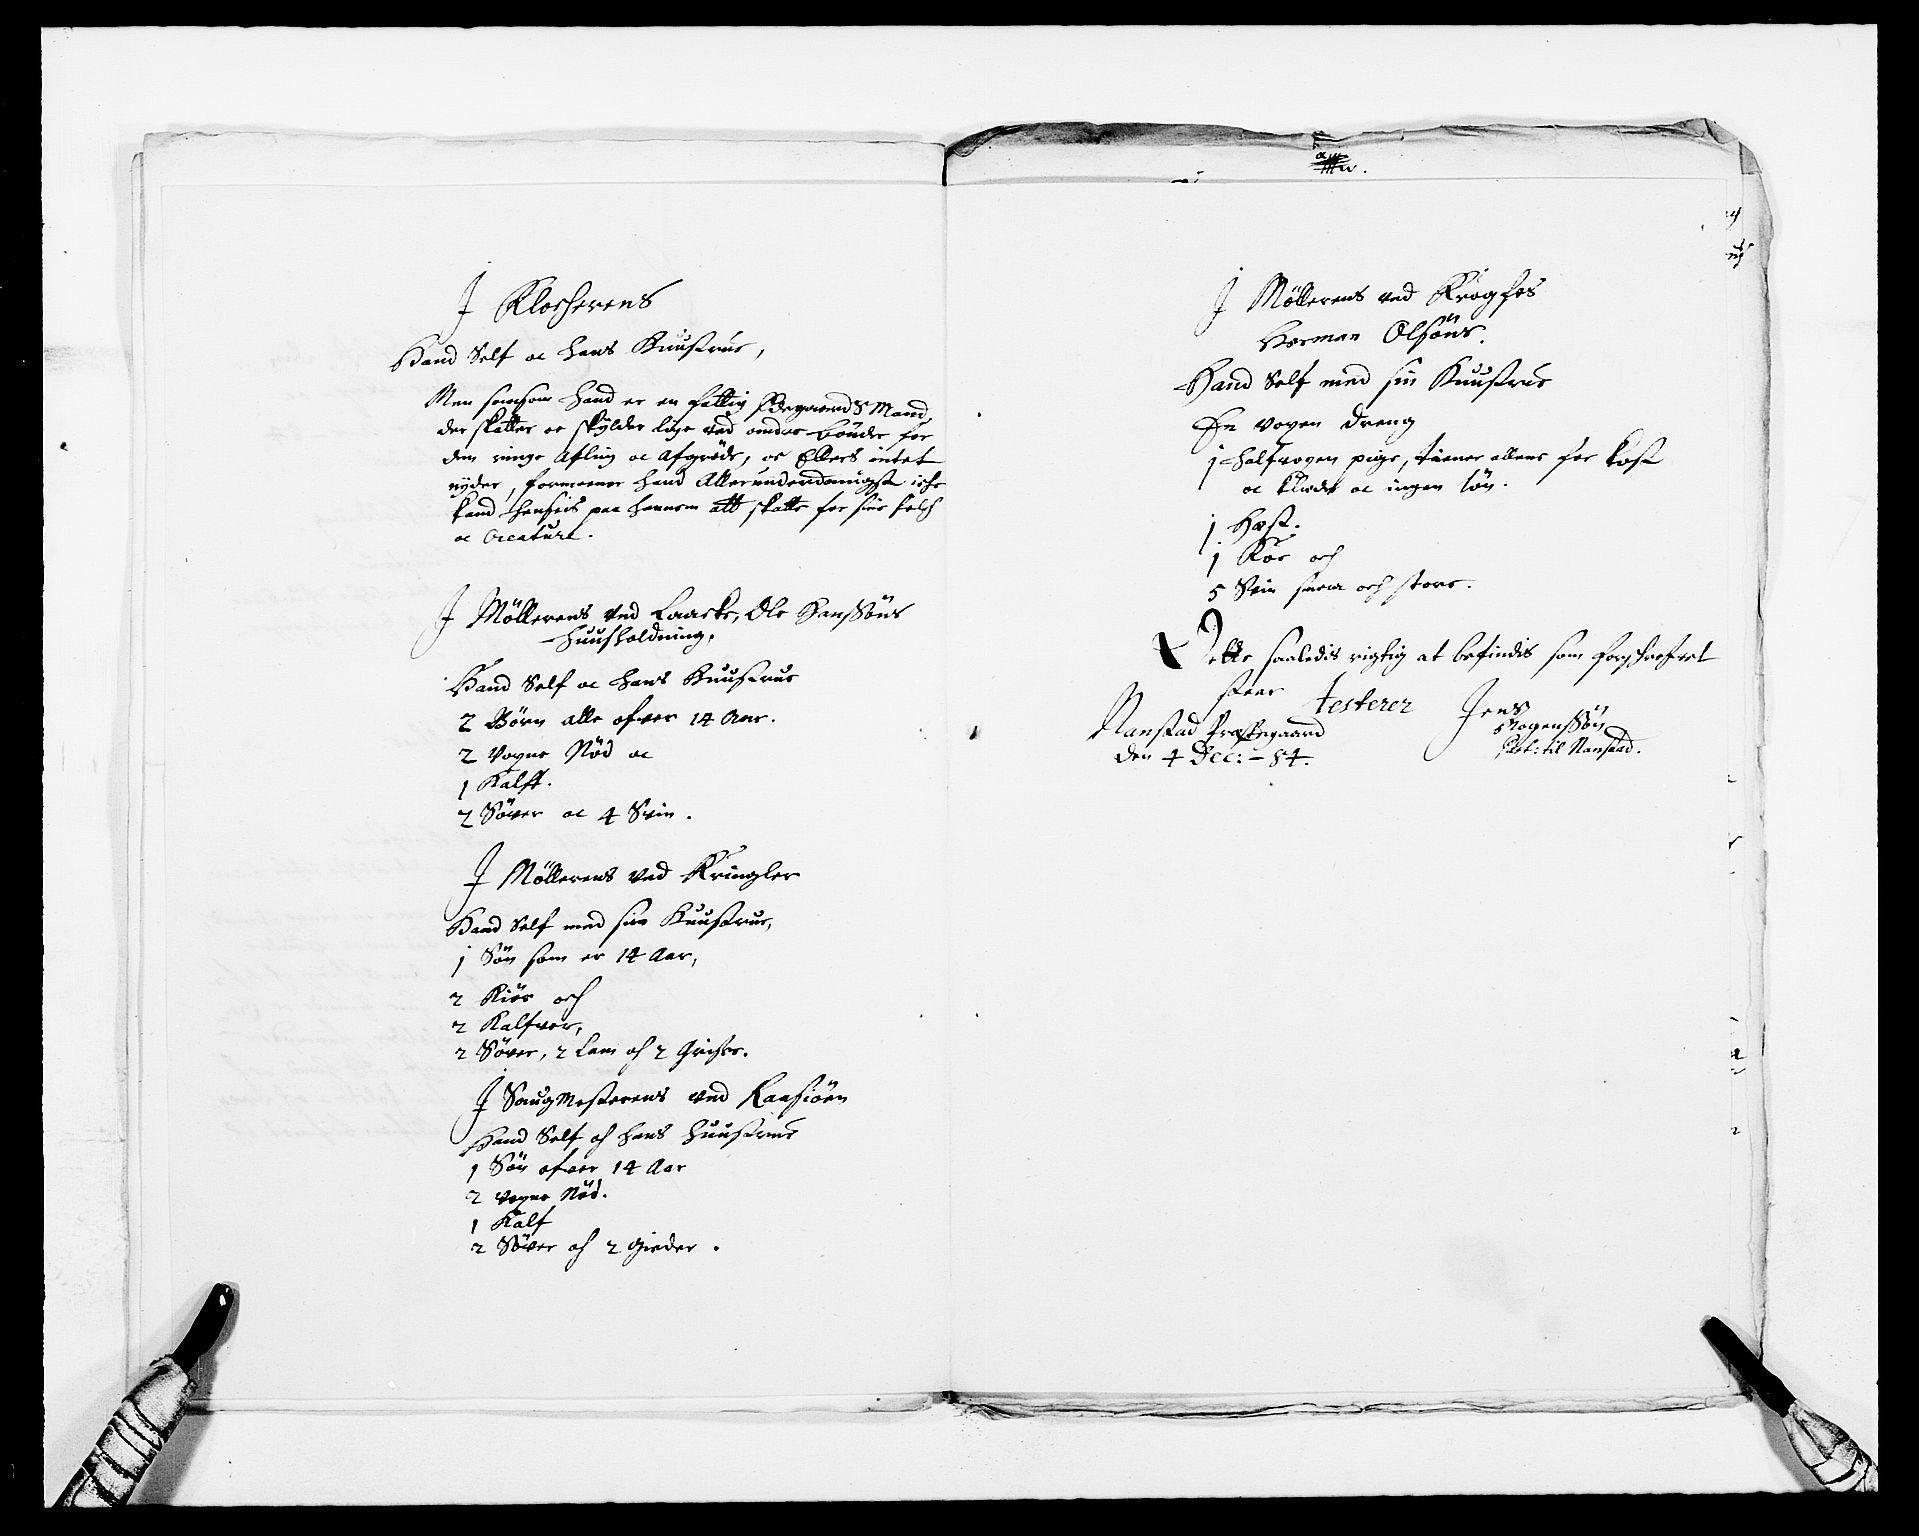 J Klocherens
Hand Self oc hans Huustrue,
Men somsom hand er en fattig Ödegaards Mand,
der skatter oc skylder lige ved andre bönder for
den ringe Afling oc Afgröde, oc Ellers intet
nyder, formeener hand Allerunderdanigst iche
kand henseis paa hannem att skatte for sine folch
oc Creature.
J Möllerens ved Laaeke, Ole Hanssöns
Huusholdning,
Hand Self oc hans Huustrue
2 Börn alle ofver 14 Aar.
2 Voxne Nöd oc
1 Kalff.
2 Söver oc 4 Svin.
J Möllerens ved Kringler
Hand Self med sin Huustrue,
1 Sön som er 14 Aar,
2 Kiör och
2 Kalfver,
2 Söver, 2 Lam och 2 Griser.
J Saugmesterens ved Raasiöen
Hand Self och hans Huustrue
1 Sön ofver 14 Aar
2 Voxne Nöd.
1 Kalf
2 Söver och 2 Gieder.
J Möllerens ved Krogfos
Herman Olsöns.
Hand Self med sin Huustrue
En voxen Dreng
1 halfvoxen pige, tiener allene for kost
oc klæder oc ingen lön.
1 Hest.
1 Koe och
5 Svin smaa och store.
Dette saaledis rigtig at befindis som forschrefvet
staar testerer Jens
Mogenssön
Nanstad Præstegaard
Past: til Nanstad.
den 4 Dec: - 84.